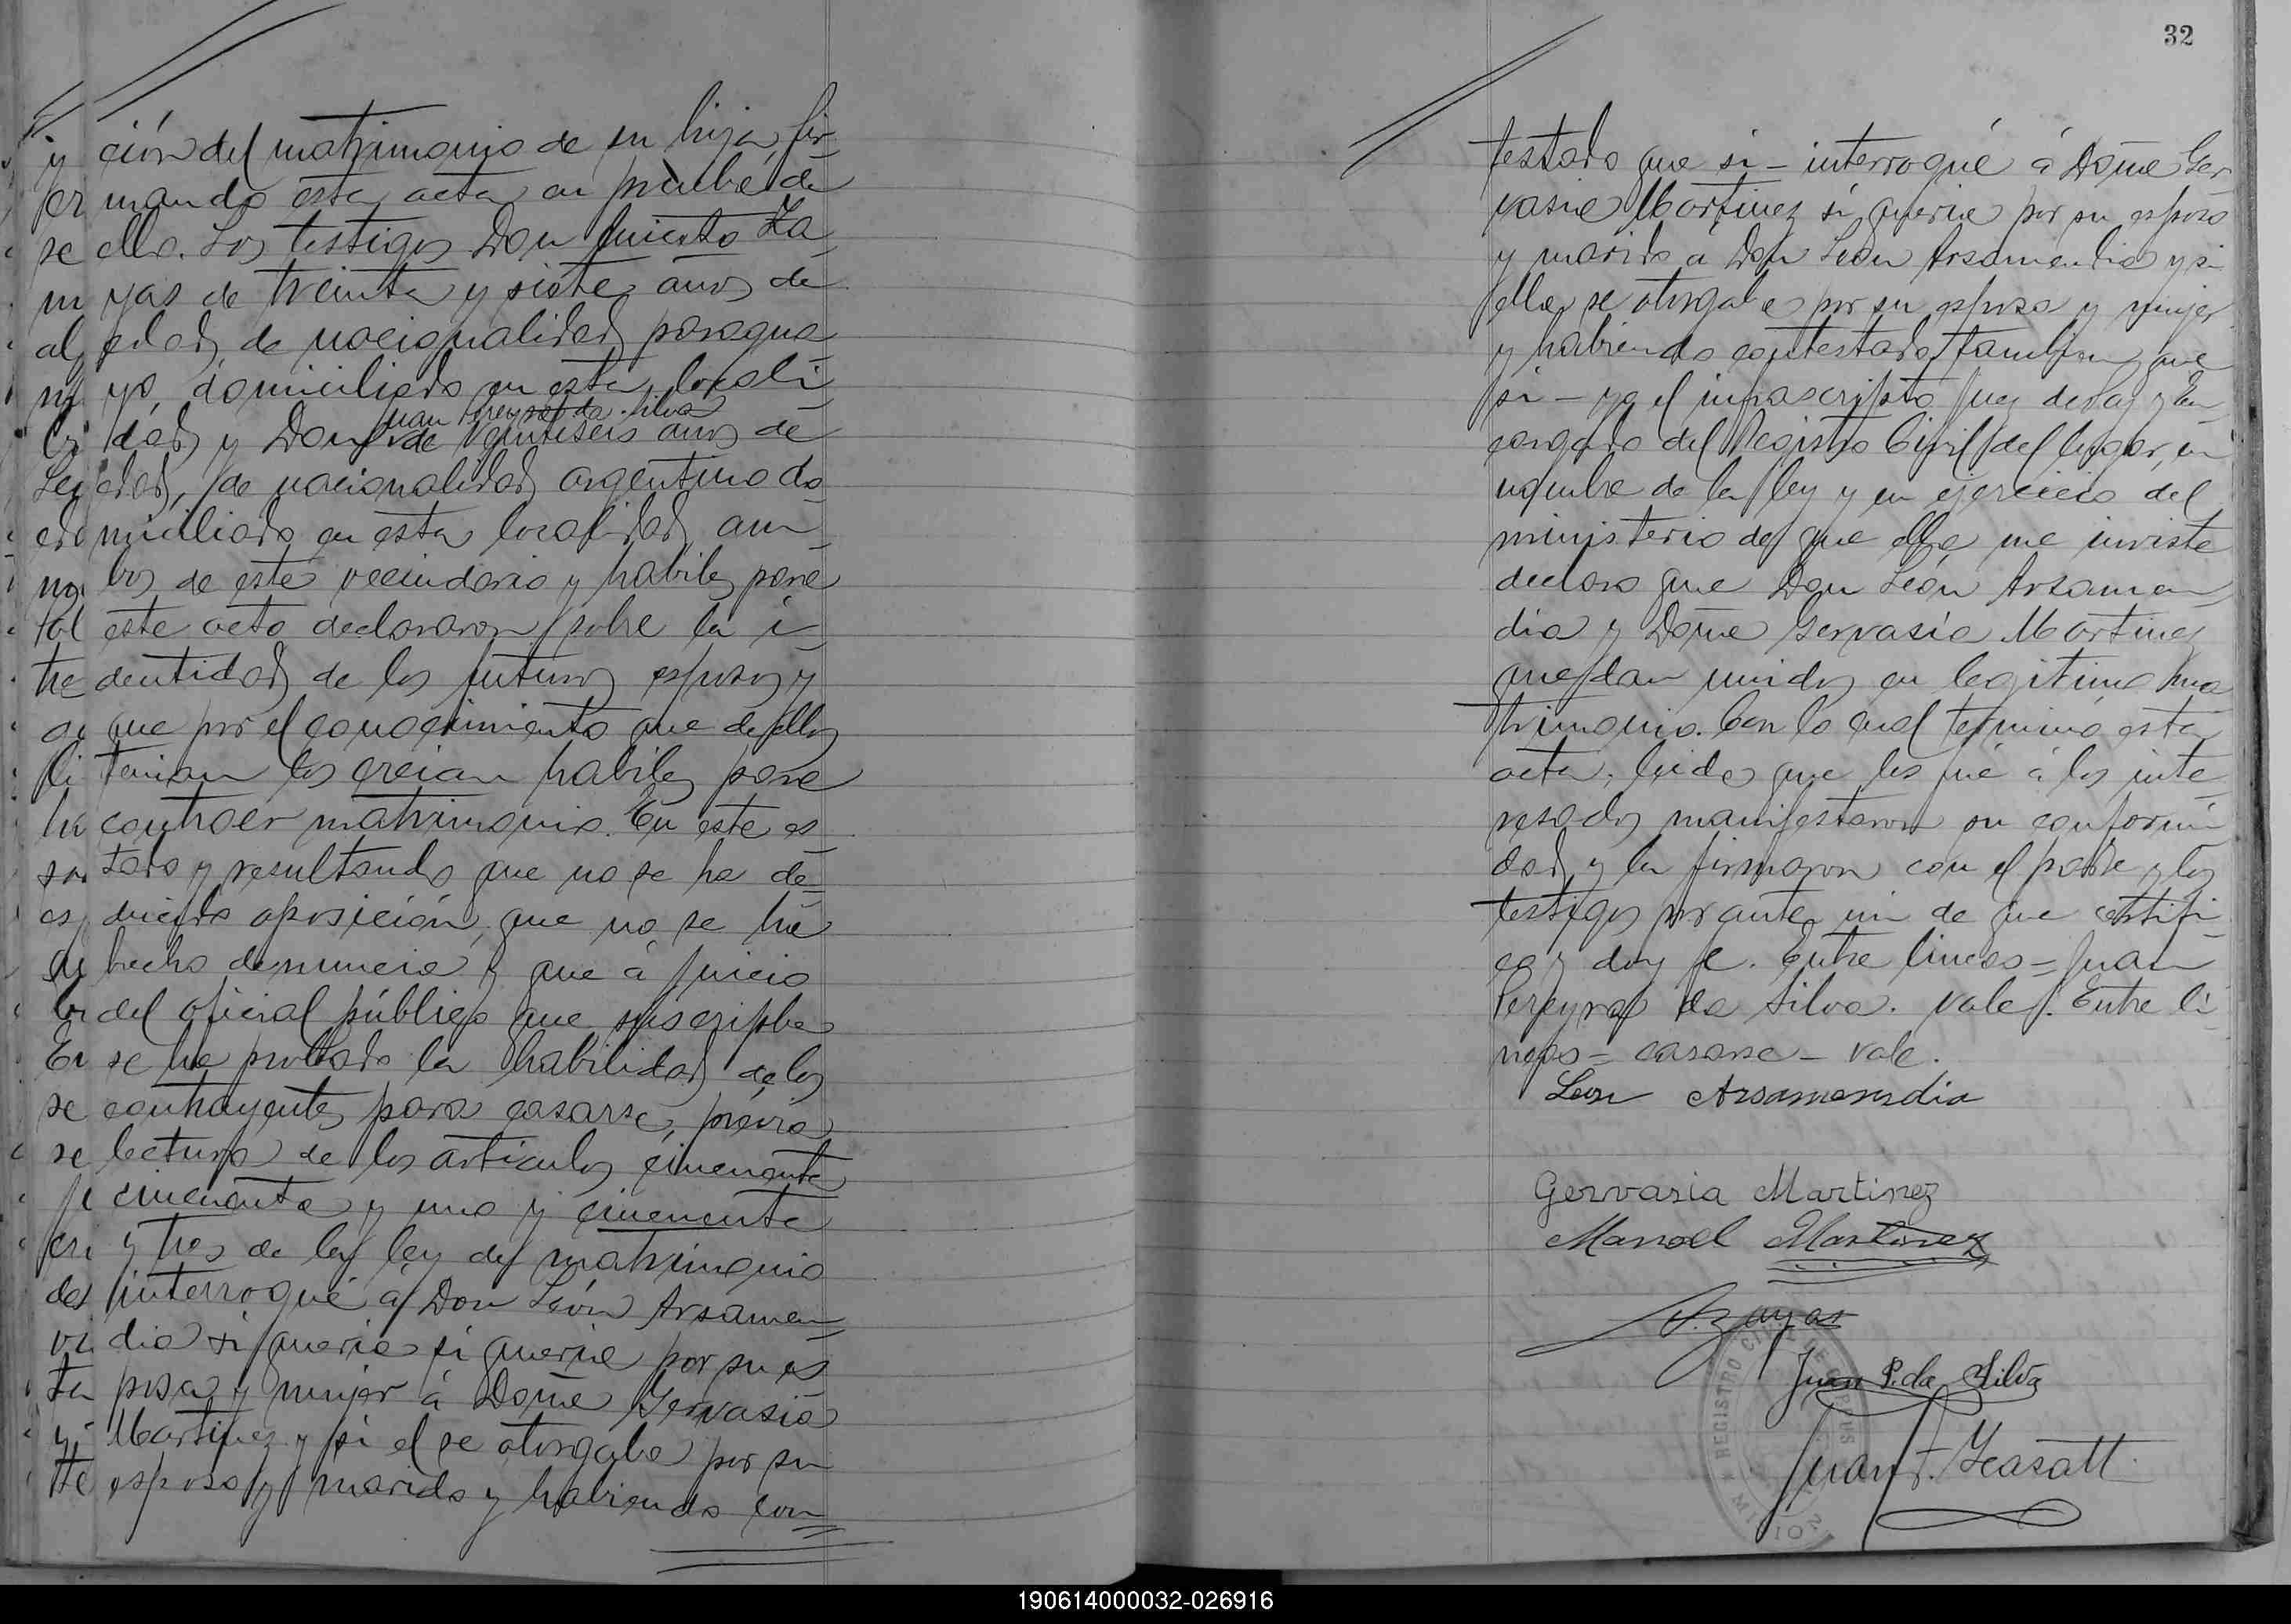 ción del matrimonio de su hija, fir-
mando esta acta en prueba de
ello. Los testigos Don Quieto Za-
yas de treinta y siete años de
edad, de nacionalidad paragua-
yo, domiciliado en esta locali-
Juan Pereyra da Silva
dad y Don de veintiseis años de
edad, de nacionalidad argentino do-
miciliado en esta localidad, am-
bos de este vecindario y habiles para
este acto declararon sobre la i-
dentidad de los futuros esposos y
que por el conocimiento que de ellos
tenian los creian habiles para
contraer matrimonio. En este es-
tado y resultando que no se ha de-
ducido oposición, que no se ha
hecho denuncia y que á juicio
del oficial público que suscripbe
se ha probado la habilidad de los
contrayentes para casarse, prévia
lectura de los articulos cincuenta
cincuenta y uno y cincuenta
y tres de la ley de matrimonio
interrogué á Don León Arsamen-
dia si queria si queria por su es-
posa y mujer á Doña Gervasia
Martinez y si el se otorgaba por su
esposo y marido y habiendo con-
32
testado que si - interrogué á Doña Ger-
vasia Martinez si queria por su esposo
y marido a Don León Arsamendia y si
ella se otorgaba por su esposa y mujer
y habiendo contestado tambien que
si - yo el infrascripto Juez de Paz y En-
cargado del Registro Civil del lugar, en
nombre de la ley y en ejercicio del
ministerio de que ella me inviste
declaro que Don León Arsamen-
dia y Doña Gervasia Martinez
quedan unidos en legitimo ma-
trimonio. Con lo cual terminó esta
acta, leida que les fué á los inte-
resados manifestaron su conformi-
dad y la firmaron con el padre y los
testigos por ante mi de que certifi-
co y doy fe. Entre lineas = Juan
Pereyra da Silva. Vale. Entre li-
neas = casarse - vale.
Leon Arsamendia
Gervasia Martinez
Manoel Martinez
Zayas
Juan P. da Silva
Juan F.
REGISTRO CIVIL
190614000032-026916